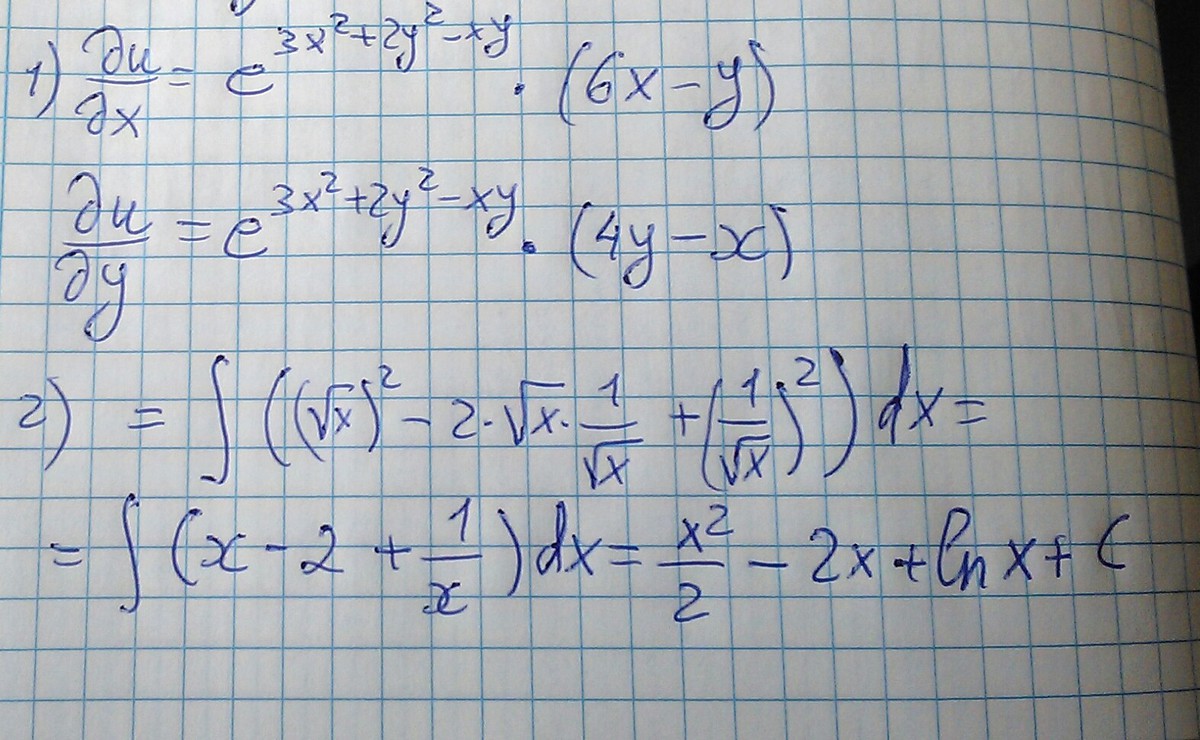 1) ∂u/∂x = e^(3x²+2y²-xy) · (6x - y)
∂u/∂y = e^(3x²+2y²-xy) · (4y - x)
2) = ∫ ((√x)² - 2·√x·1/√x + (1/√x)²) dx =
= ∫ (x - 2 + 1/x) dx = x²/2 - 2x + ln x + C